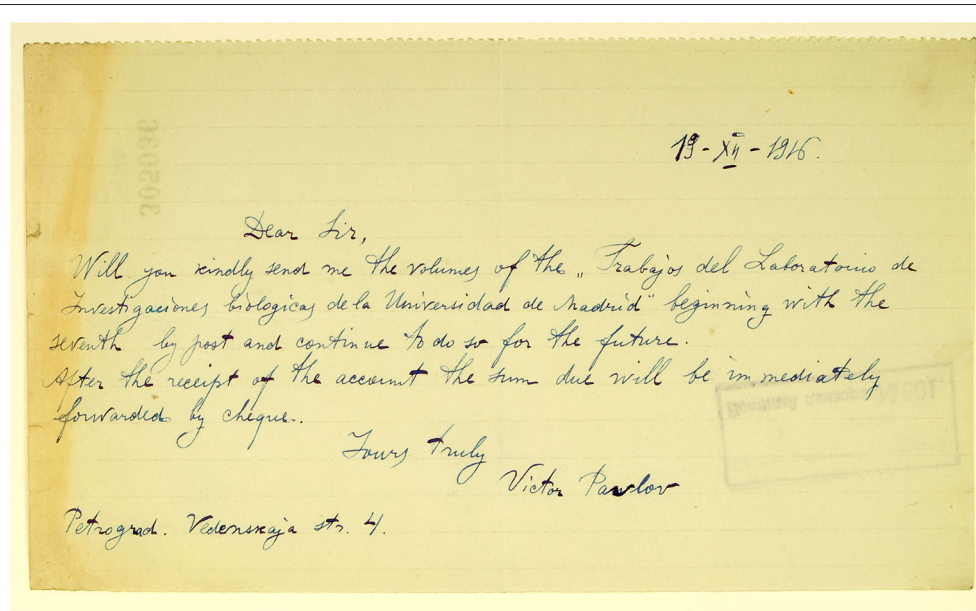 305036
19-XII-1916.
Dear Sir,
Will you kindly send me the volumes of the „Trabajos del Laboratorio de
Investigaciones biologicas de la Universidad de Madrid" beginning with the
seventh by post and continue to do so for the future.
After the receipt of the account the sum due will be immediately
forwarded by cheque.
Yours truly
Victor Pavlov
Petrograd. Vedenskaja str. 4.